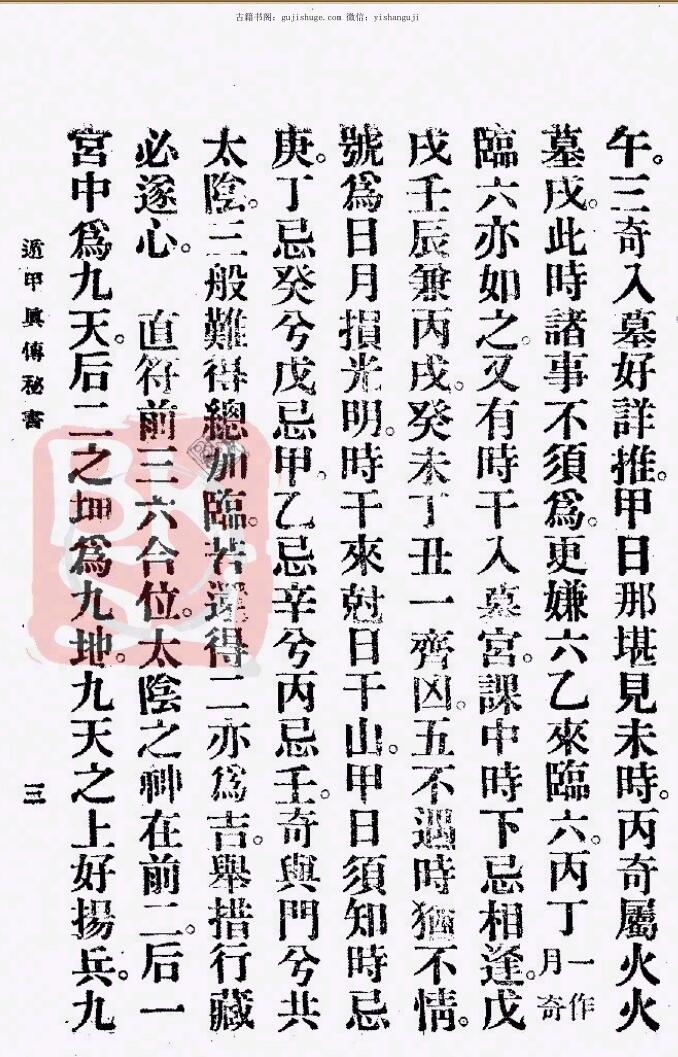 古籍书阁：gujishuge.com 微信：yishanguji
午。三奇入墓好詳推。甲日那堪見未時。丙奇屬火火
墓戌。此時諸事不須爲。更嫌六乙來臨六。丙丁一作月奇
臨六亦如之。又有時干入墓宮。課中時下忌相逢。戊
戌壬辰兼丙戌。癸未丁丑一齊凶。五不遇時猶不情。
號爲日月損光明。時干來尅日干山。甲日須知時忌
庚。丁忌癸兮戊忌甲。乙忌辛兮丙忌壬。奇與門兮共
太陰。三般難得總加臨。若還得二亦爲吉。舉措行藏
必遂心。　直符前三六合位。太陰之神在前二。后一
宮中爲九天。后二之坤爲九地。九天之上好揚兵。九
遁甲眞傳秘書　三